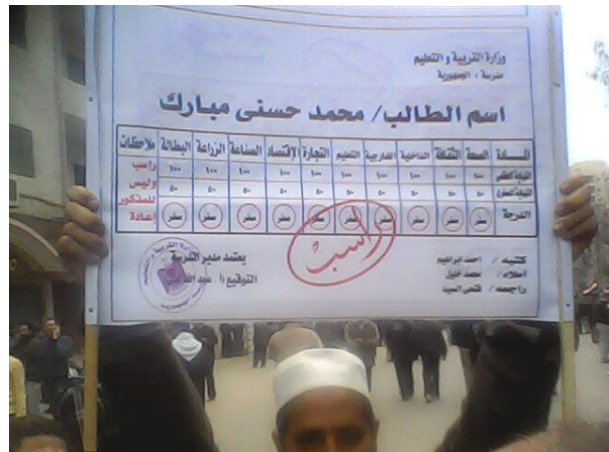 وزارة التربية و التعليم
مدرسة : الجمهورية
اسم الطالب/ محمد حسنى مبارك
المادة الصحة الثقافة الداخلية الخارجية التعليم التجارة الإقتصاد الصناعة الزراعة البطالة ملاحظات
النهاية العظمى ١٠٠ ١٠٠ ١٠٠ ١٠٠ ١٠٠ ١٠٠ ١٠٠ ١٠٠ ١٠٠ ١٠٠ راسب
النهاية الصغرى ٥٠ ٥٠ ٥٠ ٥٠ ٥٠ ٥٠ ٥٠ ٥٠ ٥٠ ٥٠ وليس
للمذكور
الدرجة صفر صفر صفر صفر صفر صفر صفر صفر صفر صفر إعادة
راسب
كتبه / احمد ابراهيم
أملاه / محمد خليل
راجعه / فتحى السيد
يعتمد مدير المدرسة
التوقيع / أ عبد